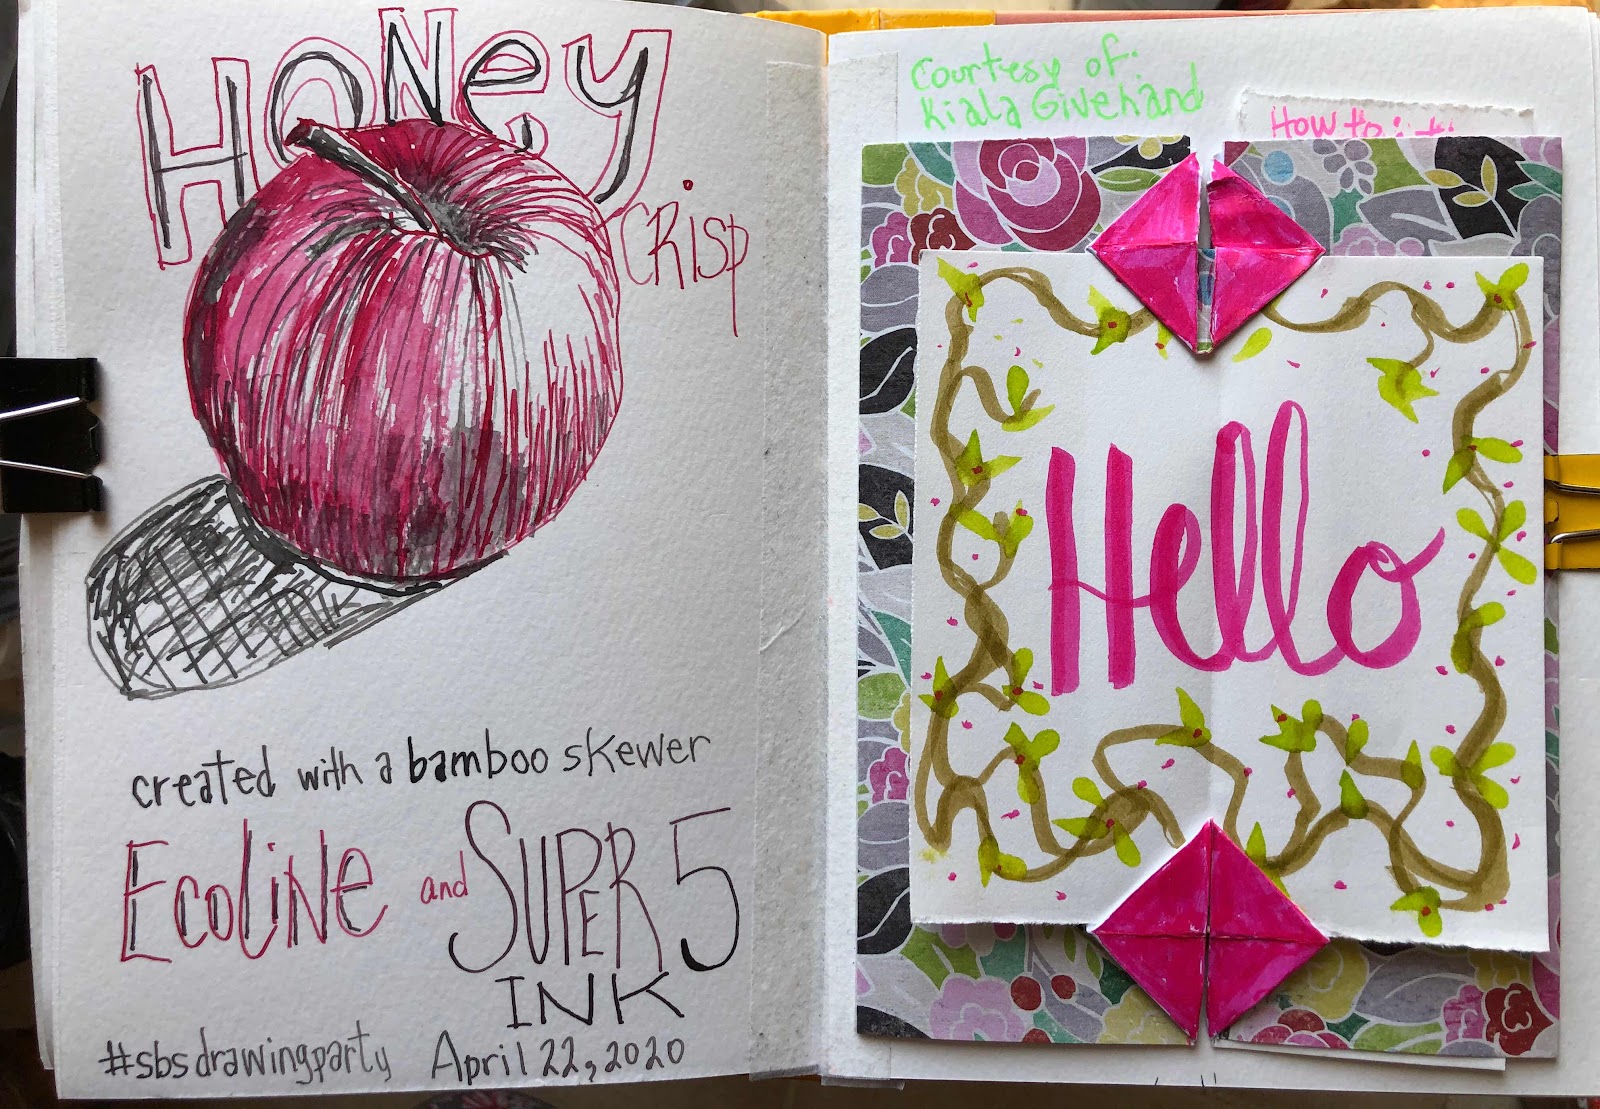 Honey
Crisp
created with a bamboo skewer
Ecoline and Super 5
INK
#sbsdrawingparty April 22, 2020
Courtesy of:
Kiala Givehand
How to
Hello